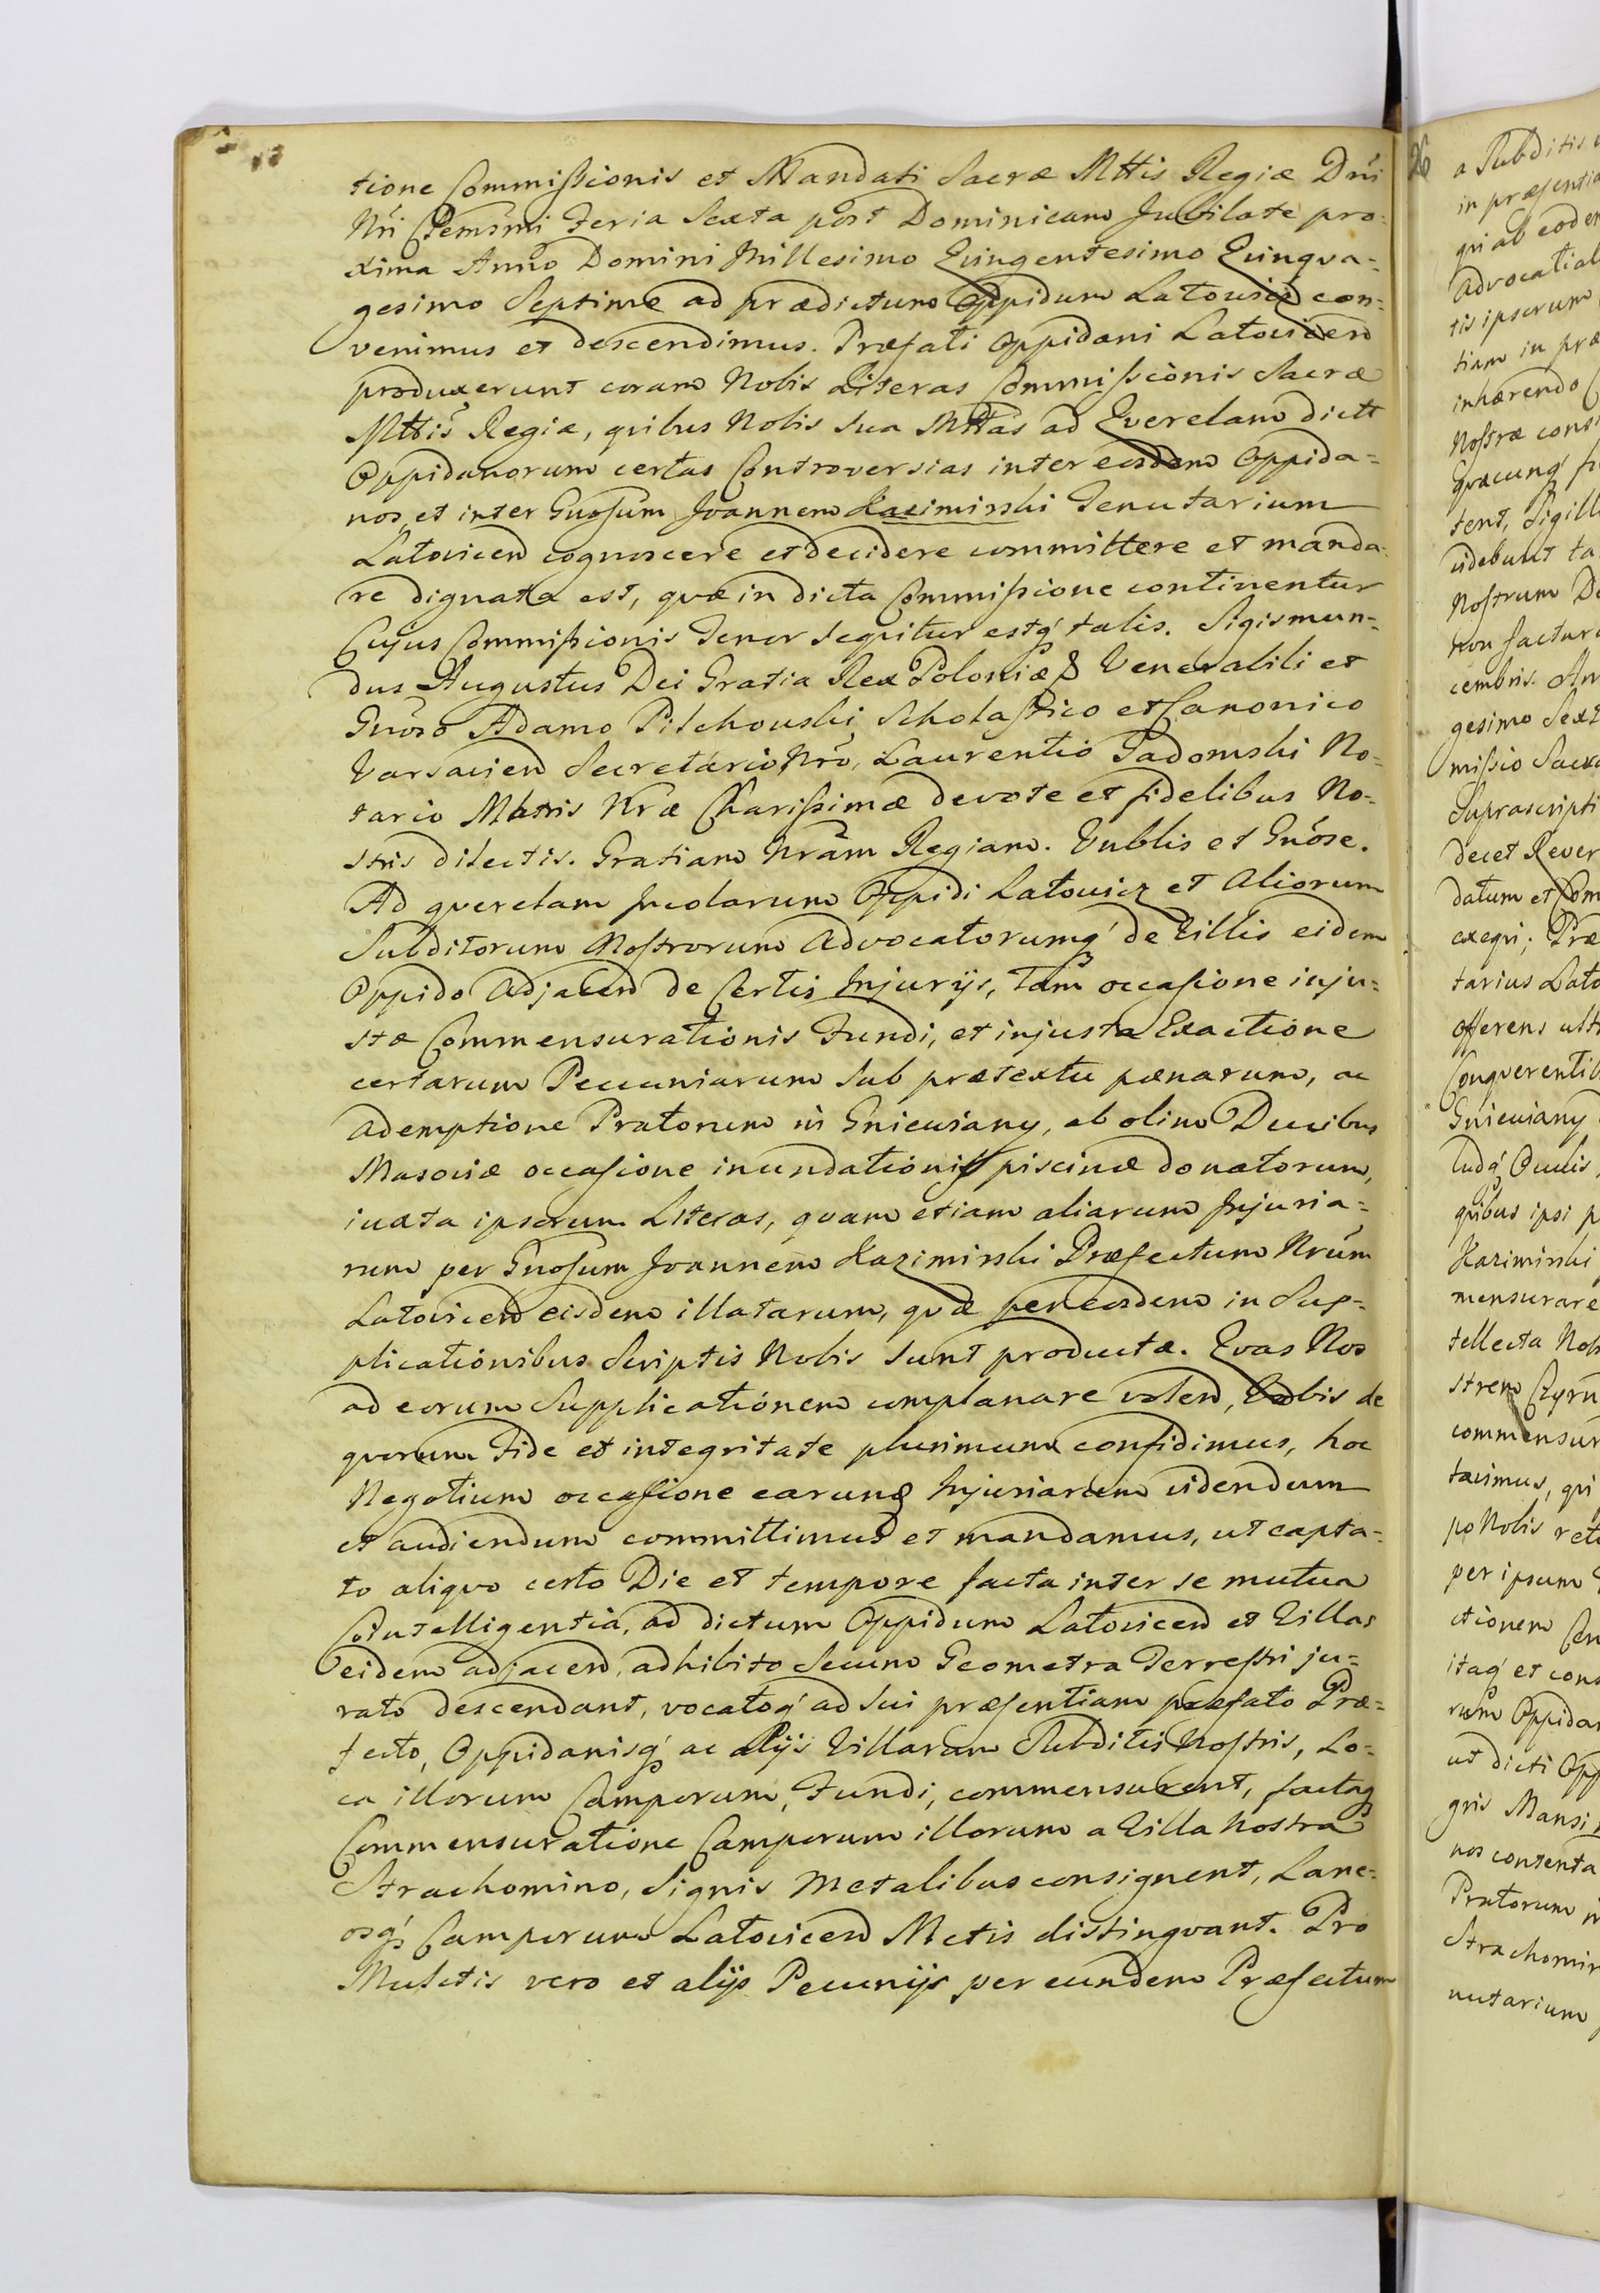 tione Commissionis et Mandati Sacræ Mttis Regiæ Dni
Nri Clemsmi Feria Sexta post Dominicam Jubilate pro-
xima Anno Domini Millesimo Quingentesimo Quinqva-
gesimo Septimo ad prædictum Oppidum Latowicz con-
venimus et descendimus. Præfati Oppidani Latovicen
produxerunt coram Nobis Literas Commissionis Sacræ
Mttis Regiæ, qvibus Nobis Sua Mttas ad Qverelam dictt
Oppidanorum certas Controversias inter eosdem Oppida-
nos et inter Gnosum Joannem Kazimirski Tenutarium
Latovicen cognoscere et decidere committere et manda-
re dignata est, qvæ in dicta Commissione continentur
Cujus Commissionis Tenor seqvitur estq' talis. Sigismun-
dus Augustus Dei Gratia Rex Poloniæ & Venerabili et
Gnoso Adamo Pilchowski Scholastico et Canonico
Varsavien Secretario Nro, Laurentio Gadomski No-
tario Matris Nræ Charissimæ devote et fidelibus No-
stris dilectis. Gratiam Nram Regiam. Vnblis et Gnose.
Ad qverelam Incolarum Oppidi Latowicz et Aliorum
Subditorum Nostrorum Advocatorumq' de Villis eidem
Oppido Adjacen de Certis Injurijs, tam occasione inju-
stæ Commensurationis Fundi, et injusta Exactione
certarum Pecuniarum sub prætextu pænarum, ac
ademptione Pratorum in Gniewiany, ab olim Ducibus
Masoviæ occasione inundationis piscinæ donatorum,
iuxta ipsorum Literas, qvam etiam aliarum Injuria-
rum per Gnosum Joannem Kazimirski Præfectum Nrum
Latovicen eisdem illatarum, qvæ per eosdem in Sup-
plicationibus Scriptis Nobis sunt productæ. Qvas Nos
ad eorum Supplicationem complanare volen, Vobis de
qvorum Fide et integritate plurimum confidimus, hoc
Negotium occasione earunq Injuriarum videndum
et audiendum committimus et mandamus, ut capta-
to aliqvo certo Die et tempore facta inter se mutua
Cointelligentia, ad dictum Oppidum Latovicen et Villas
eidem adjacen, adhibito secum Geometra Terrestri ju-
rato descendant, vocatoq' ad sui præsentiam præfato Præ-
fecto, Oppidanisq' ac alijs Villarum Subditis Nostris, Lo-
ca illorum Camporum, Fundi, commensurent, factaq
Commensuratione Camporum illorum a Villa Nostra
Strachomino, Signis Metalibus consignent, Lane-
osq' Camporum Latovicen Metis distingvant. Pro
Mulctis vero et alijs Pecunijs per eundem Præfectum
26
a Subditis
in præsentia
qvi ab eodem
Advocatial
tis ipsorum
tiam in præ
inhærendo
Nostræ cons
Qvæcunq'
tent, Sigill
videbunt ta
Nostrum De
non factur
cembris. An
gesimo Sext
missio Sacræ
Suprascripti
decet Rever
datum et Com
exeqvi; Præ
tarius Lato
offerens ult
Conqverentib
Gniewiany
ludq' Oculis,
qvibus ipsi p
Kazimirski
mensurare
tellecta Nob
strem Czyrn
commensur
tavimus, qvi
po Nobis ret
per ipsum
ctionem Cen
itaq' et cons
rum Oppidan
ut dicti Opp
gris Mansi
nos contenta
Pratorum in
Strachomin
nutarium